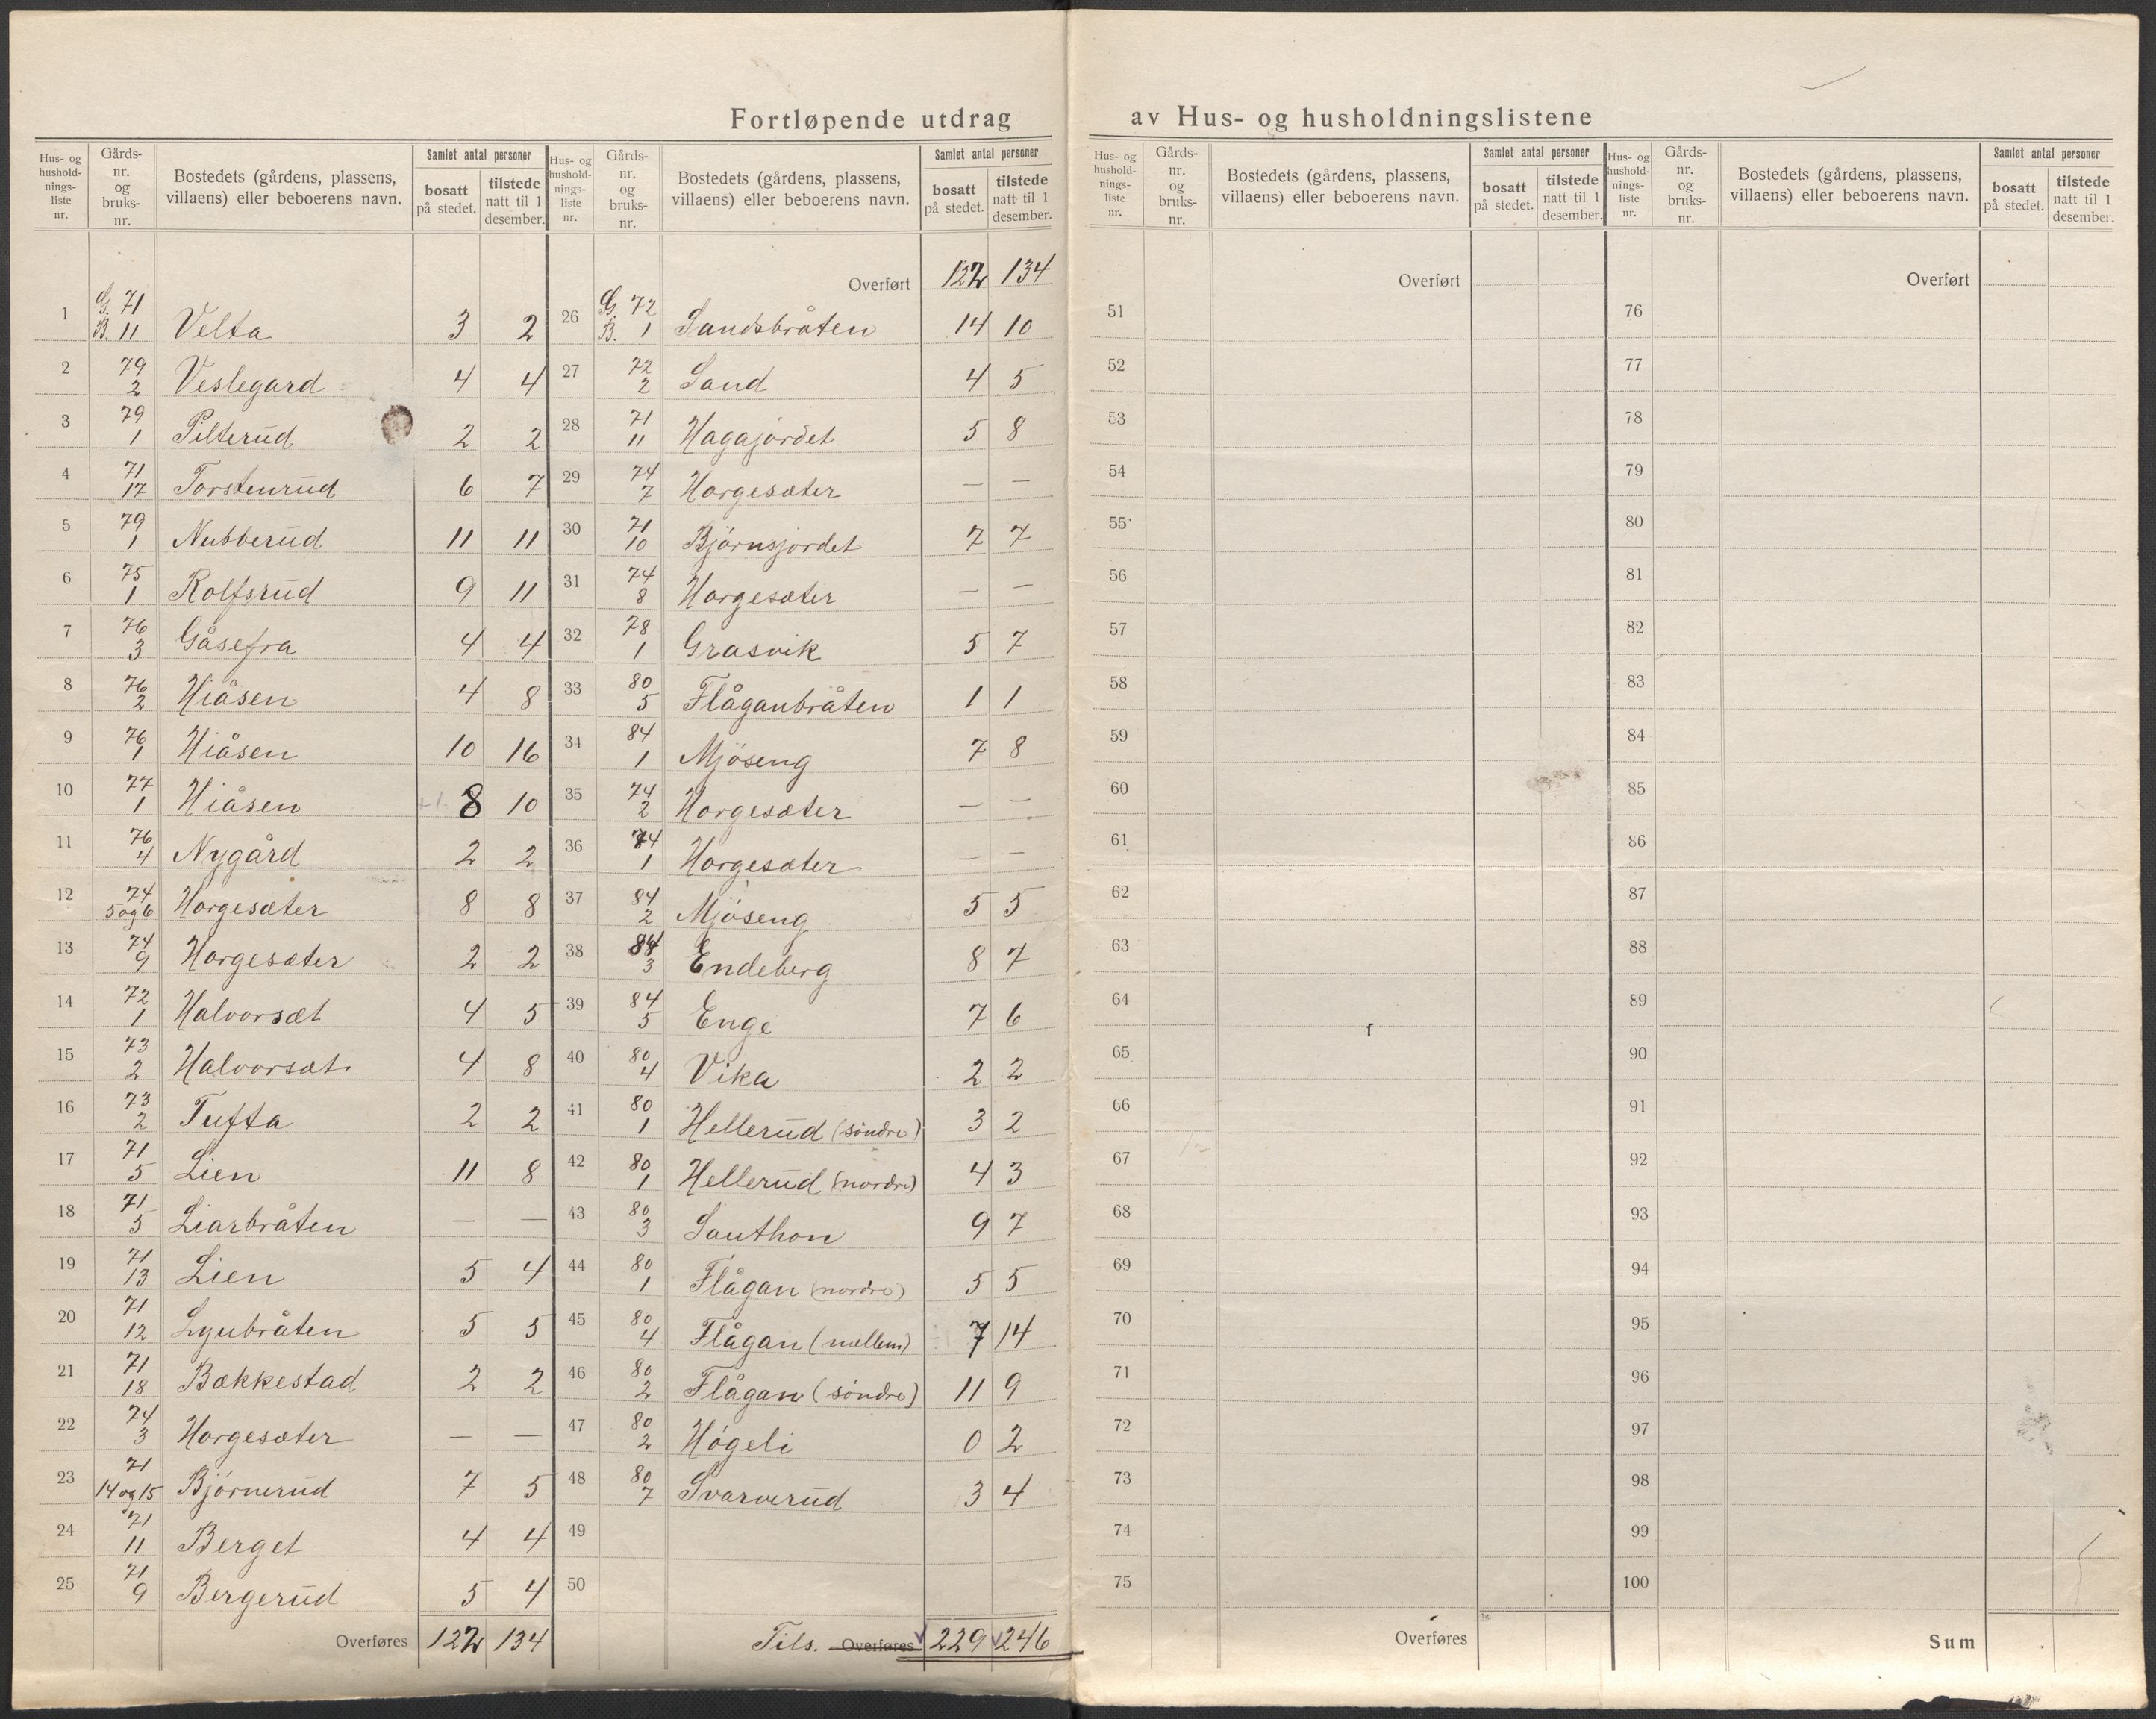 Fortløpende utdrag av Hus- og husholdningslistene
Hus- og husholdningsliste nr. | Gårds-nr. og bruks-nr. | Bostedets (gårdens, plassens, villaens) eller beboerens navn. | Samlet antal personer bosatt på stedet. | tilstede natt til 1 desember.
1 | G. 71 B. 11 | Velta | 3 | 2
2 | 79 2 | Veslegard | 4 | 4
3 | 79 1 | Pilterud | 2 | 2
4 | 71 17 | Torstenrud | 6 | 7
5 | 79 1 | Nubberud | 11 | 11
6 | 75 1 | Rolfsrud | 9 | 11
7 | 76 3 | Gåsefra | 4 | 4
8 | 76 2 | Hiåsen | 4 | 8
9 | 76 1 | Hiåsen | 10 | 16
10 | 77 1 | Hiåsen | +1. 8 | 10
11 | 76 4 | Nygård | 2 | 2
12 | 74 5 og 6 | Horgesæter | 8 | 8
13 | 74 9 | Horgesæter | 2 | 2
14 | 72 1 | Halvorsæt | 4 | 5
15 | 73 2 | Halvorsæt | 4 | 8
16 | 73 2 | Tufta | 2 | 2
17 | 71 5 | Lien | 11 | 8
18 | 71 5 | Liarbråten | — | —
19 | 71 13 | Lien | 5 | 4
20 | 71 12 | Lynbråten | 5 | 5
21 | 71 18 | Bækkestad | 2 | 2
22 | 74 3 | Horgesæter | — | —
23 | 71 14 og 15 | Bjørnerud | 7 | 5
24 | 71 11 | Berget | 4 | 4
25 | 71 9 | Bergerud | 5 | 4
Overføres | 122 | 134
Hus- og husholdningsliste nr. | Gårds-nr. og bruks-nr. | Bostedets (gårdens, plassens, villaens) eller beboerens navn. | Samlet antal personer bosatt på stedet. | tilstede natt til 1 desember.
Overført | 122 | 134
26 | G. 72 B. 1 | Sandsbråten | 14 | 10
27 | 72 2 | Sand | 4 | 5
28 | 71 11 | Hagajordet | 5 | 8
29 | 74 7 | Horgesæter | — | —
30 | 71 10 | Bjørnsjordet | 7 | 7
31 | 74 8 | Horgesæter | — | —
32 | 78 1 | Grasvik | 5 | 7
33 | 80 5 | Flåganbråten | 1 | 1
34 | 84 1 | Mjøseng | 7 | 8
35 | 74 2 | Horgesæter | — | —
36 | 74 1 | Horgesæter | — | —
37 | 84 2 | Mjøseng | 5 | 5
38 | 84 3 | Endeberg | 8 | 7
39 | 84 5 | Enge | 7 | 6
40 | 80 4 | Vika | 2 | 2
41 | 80 1 | Hellerud (søndre) | 3 | 2
42 | 80 1 | Hellerud (nordre) | 4 | 3
43 | 80 3 | Sauthon | 9 | 7
44 | 80 1 | Flågan (nordre) | 5 | 5
45 | 80 4 | Flågan (mellem) | 7 | 14
46 | 80 2 | Flågan (søndre) | 11 | 9
47 | 80 2 | Høgeli | 0 | 2
48 | 80 7 | Svarverud | 3 | 4
49
50
Tils. Overføres | 229 | 246
Hus- og husholdningsliste nr. | Gårds-nr. og bruks-nr. | Bostedets (gårdens, plassens, villaens) eller beboerens navn. | Samlet antal personer bosatt på stedet. | tilstede natt til 1 desember.
Overført
51
52
53
54
55
56
57
58
59
60
61
62
63
64
65
66
67
68
69
70
71
72
73
74
75
Overføres
Hus- og husholdningsliste nr. | Gårds-nr. og bruks-nr. | Bostedets (gårdens, plassens, villaens) eller beboerens navn. | Samlet antal personer bosatt på stedet. | tilstede natt til 1 desember.
Overført
76
77
78
79
80
81
82
83
84
85
86
87
88
89
90
91
92
93
94
95
96
97
98
99
100
Sum